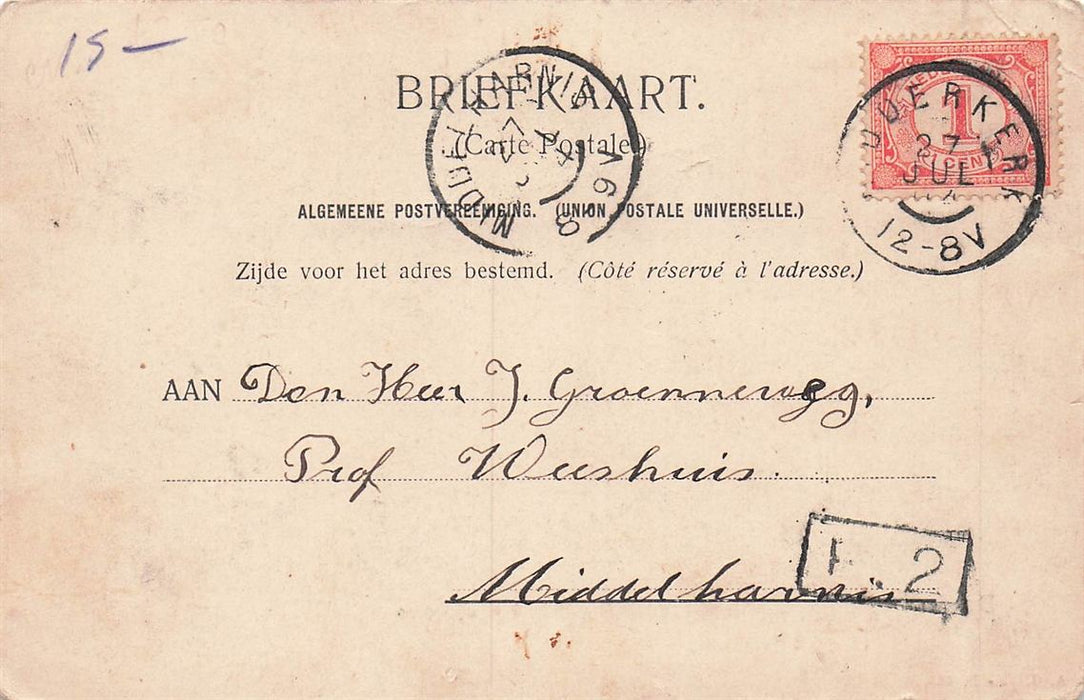 15 —
BRIEFKAART.
(Carte Postale)
ALGEMEENE POSTVEREENIGING. (UNION POSTALE UNIVERSELLE.)
Zijde voor het adres bestemd. (Côté réservé à l'adresse.)
MIDDELHARNIS
8 9 V
1 CENT
OUDERKERK
27 JUL
12-8V
AAN Den Heer J. Groenewegg,
Prof Weeshuis.
Middelharnis
2